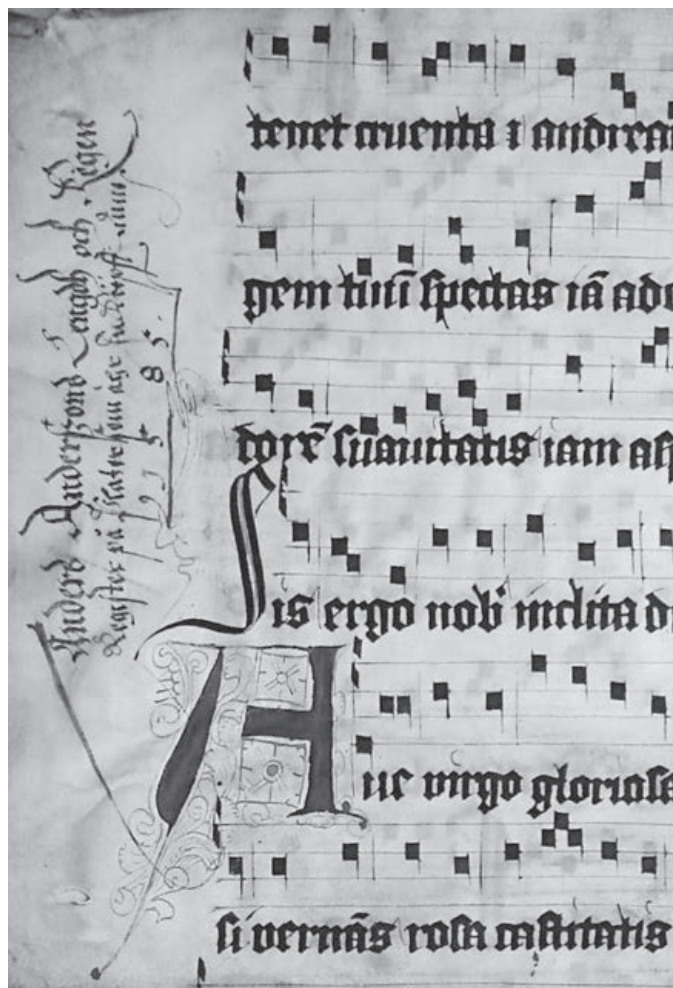 Anderß Anderßonß Lengdh och Eigen
Register på
1585.
tenet cruenta i andrea
gem tuū spectas iā ado
dorē suauitatis iam asp
Sis ergo nob inclita d
Aue virgo gloriosa
si vernās rosa castitatis